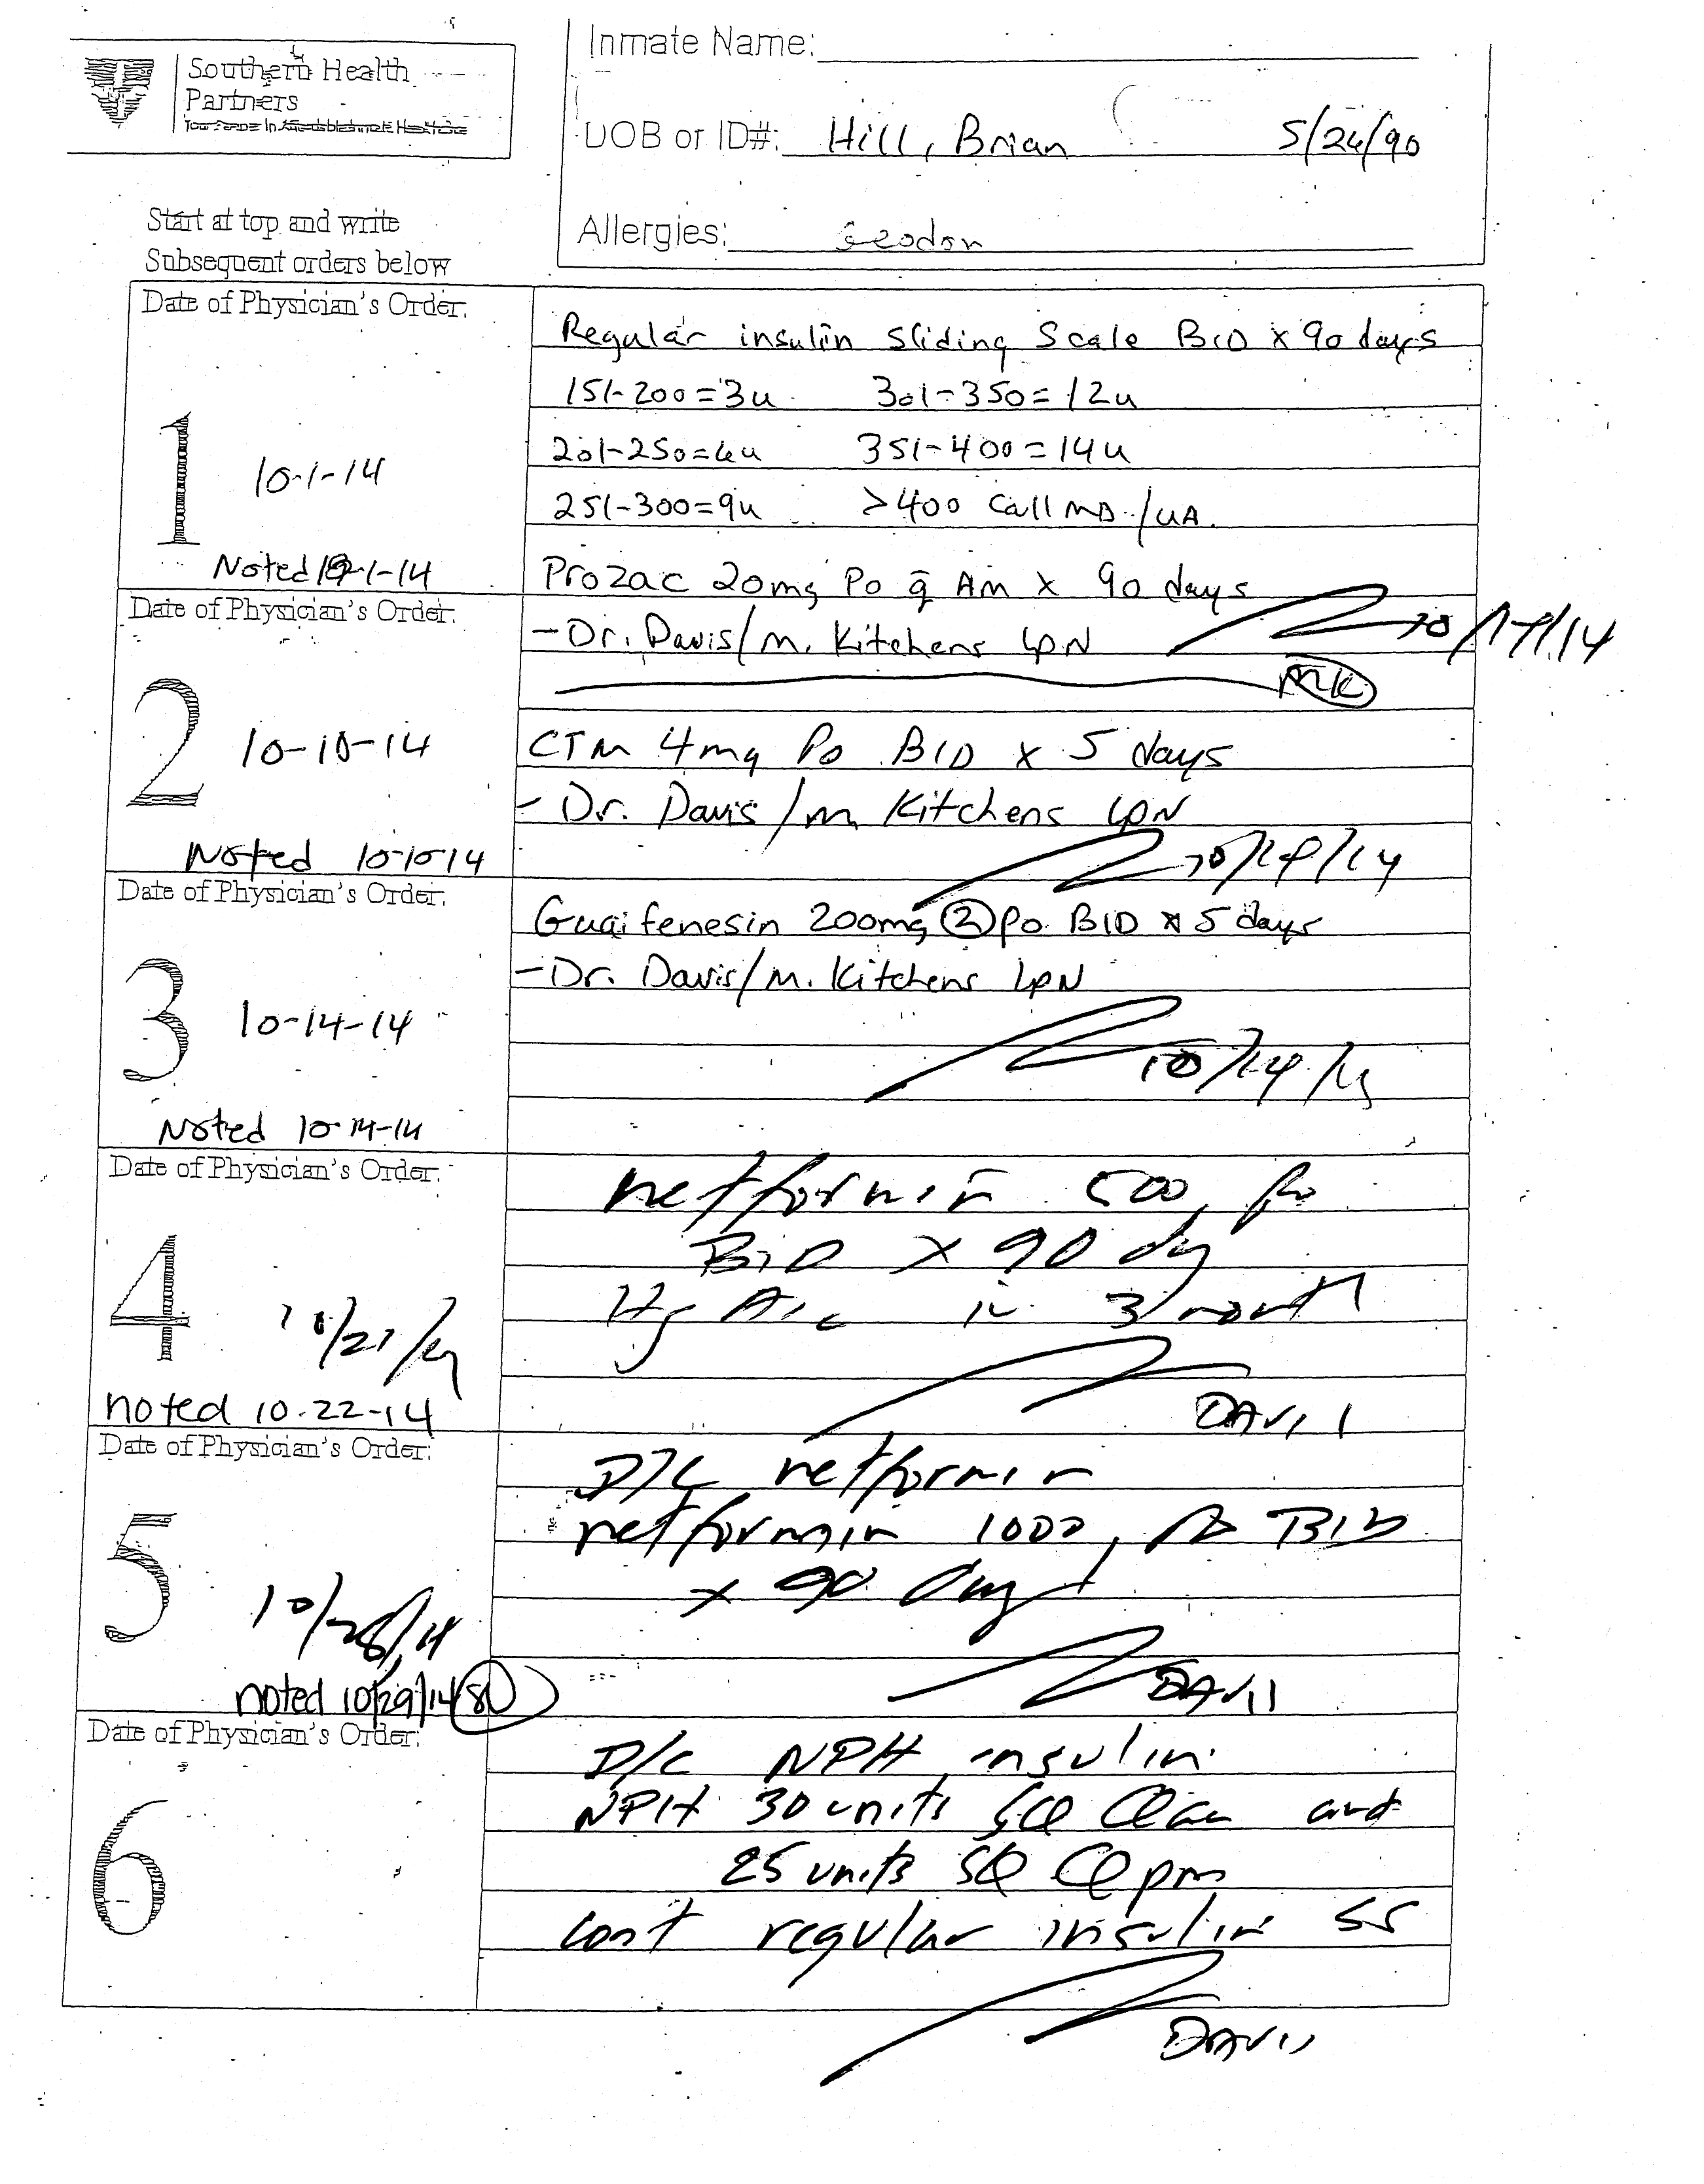 Southern Health
Partners
Inmate Name:
DOB or ID#: Hill, Brian 5/26/90
Allergies: Geodon
Start at top and write
Subsequent orders below
Date of Physician's Order:
1
10-1-14
Noted 10-1-14
Regular insulin Sliding Scale BID x 90 days
151-200=3u 301-350=12u
201-250=6u 351-400=14u
251-300=9u >400 Call MD/UA.
Prozac 20mg Po q̄ Am x 90 days
- Dr. Davis/M. Kitchens LPN
MK
Date of Physician's Order:
2
10-10-14
Noted 10-10-14
CTM 4mg Po BID x 5 days
- Dr. Davis/M Kitchens LPN
Date of Physician's Order:
3
10-14-14
Noted 10-14-14
Guaifenesin 200mg ② Po BID x 5 days
- Dr. Davis/M. Kitchens LPN
10/14/14
Date of Physician's Order:
4
noted 10-22-14
metformin 500 po
BID x 90 day
Hg A1c in 3 month
DAVIS
Date of Physician's Order:
5
10/28/14
noted 10/29/14
D/C metformin
metformin 1000 po BID
x 90 days
DAVIS
Date of Physician's Order:
6
D/C NPH insulin
NPH 30 units SQ Qam and
25 units SQ Qpm
cont regular insulin SS
DAVIS